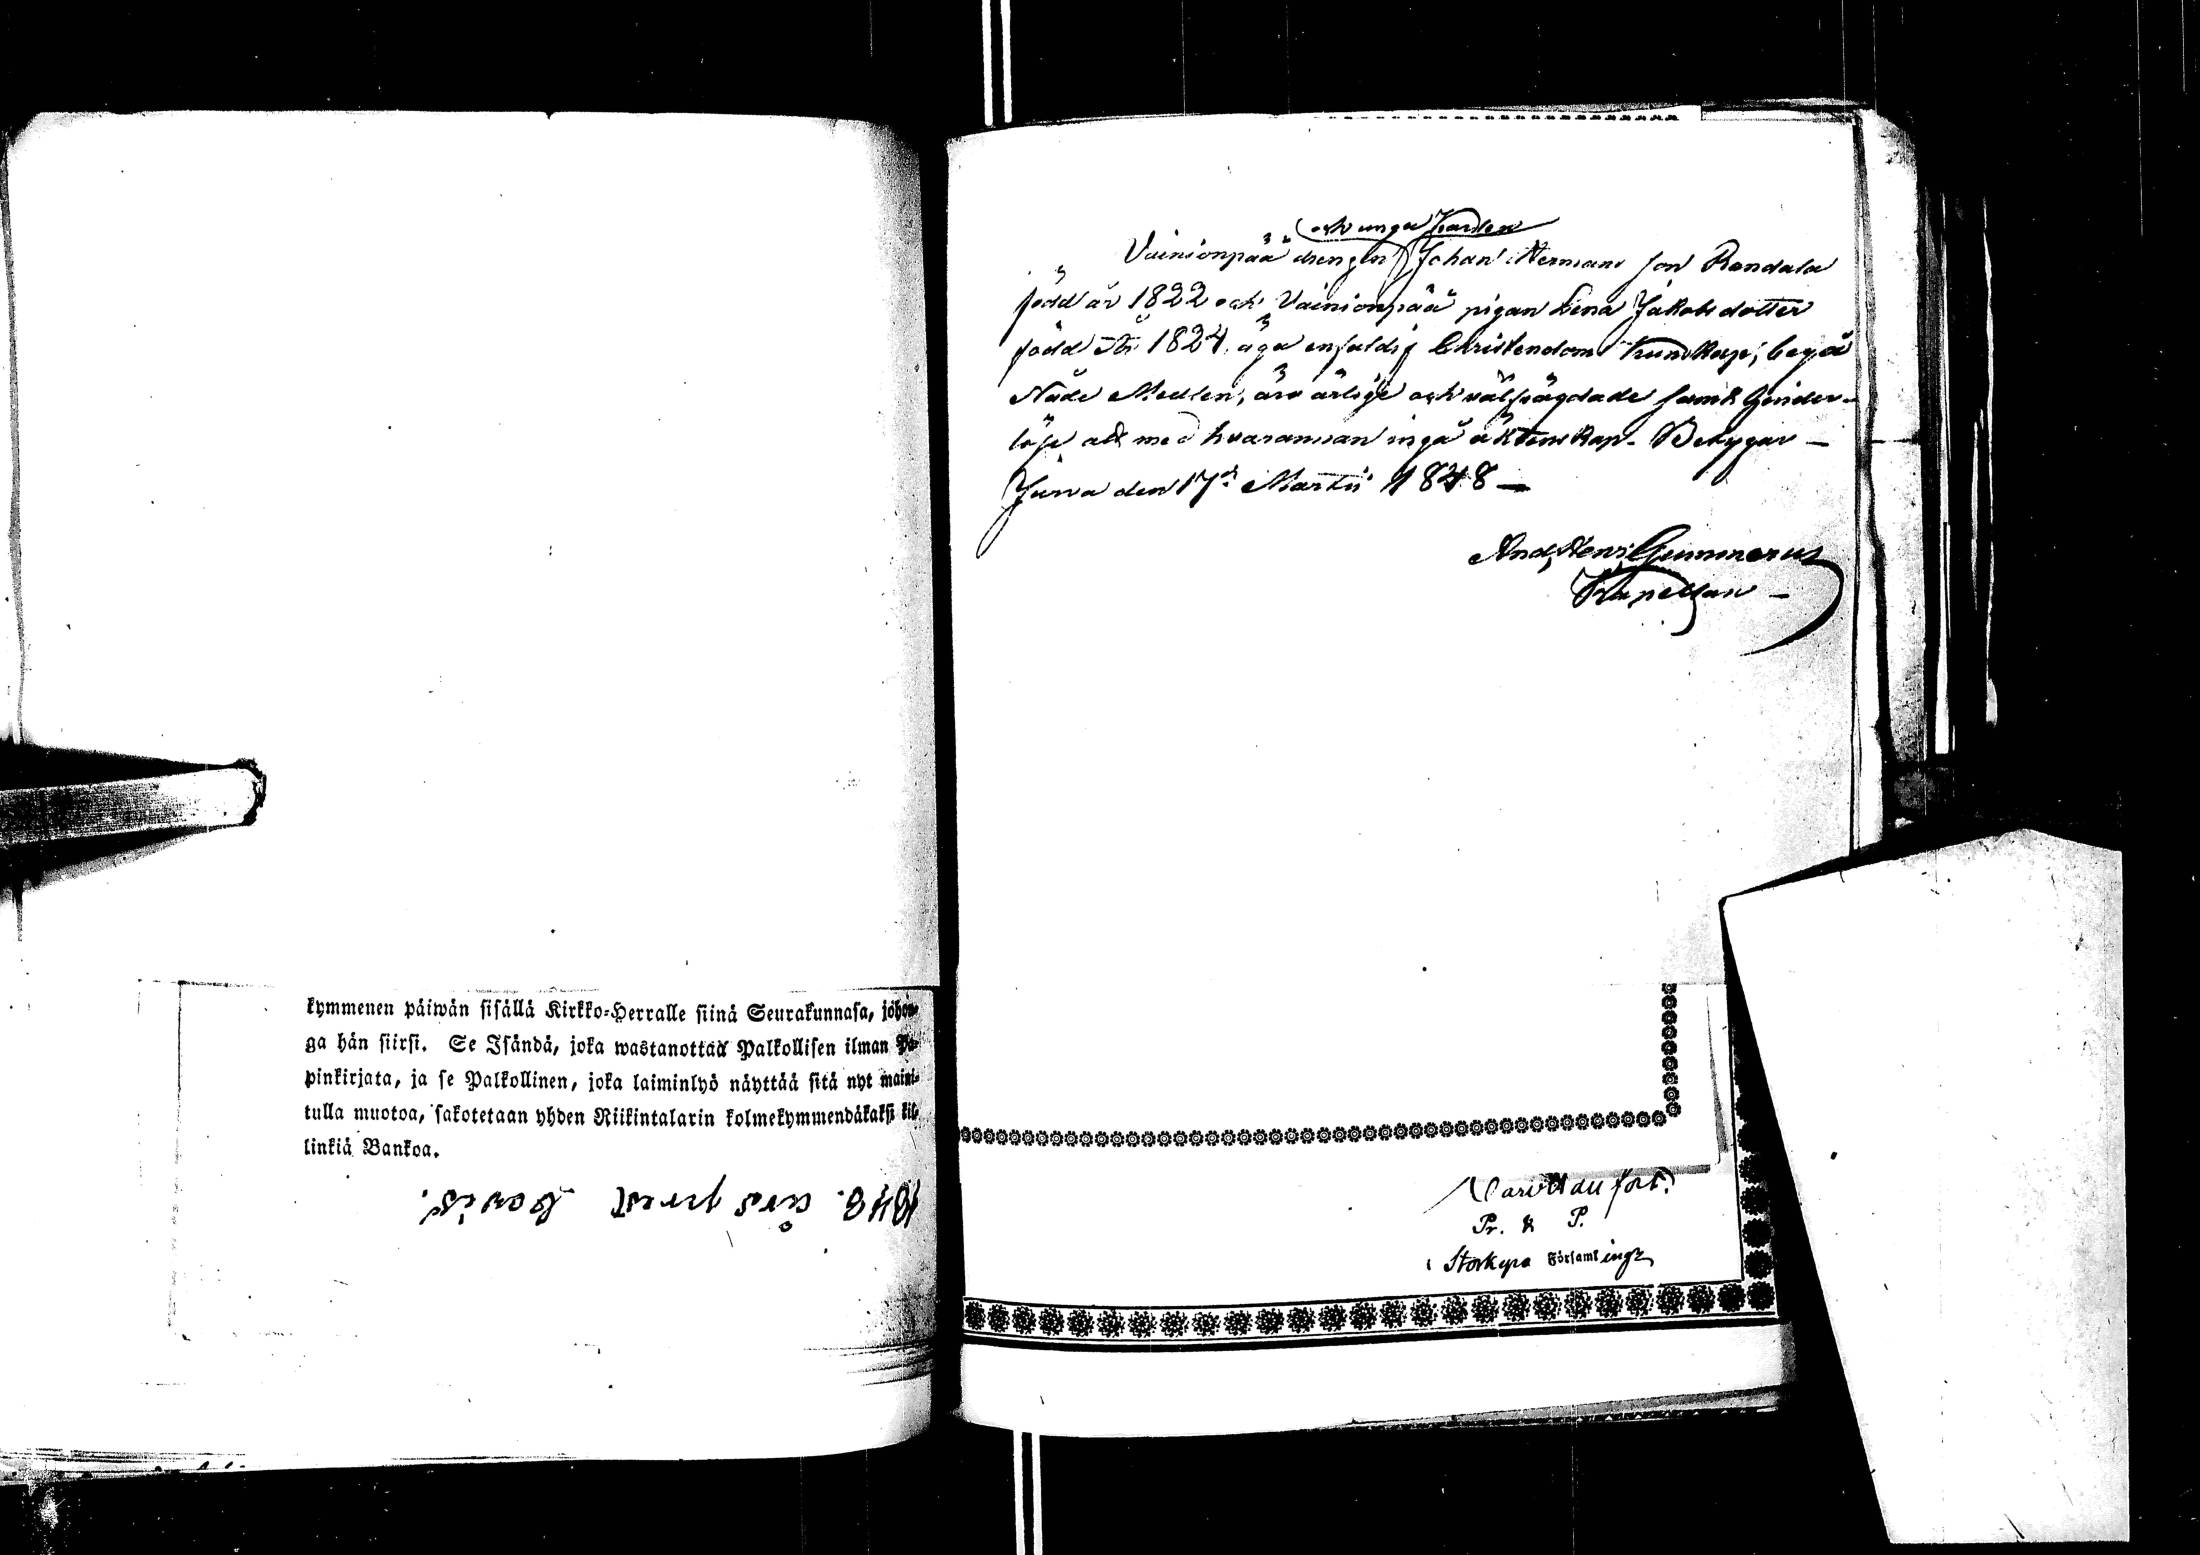 kymmenen päiwän sisällä Kirkko-Herralle siinä Seurakunnasa, johon-
ga hän siirsi. Se Isändä, joka wastanottaa Palkollisen ilman Pa-
pinkirjata, ja se Palkollinen, joka laiminlyö näyttää sitä nyt maini-
tulla muotoa, sakotetaan yhden Riikintalarin kolmekymmendäkaksi kil-
linkiä Bankoa.
1848. års prest bevis.
och unga karlen
Vainionpää drengen Johan Herman son Randala
född år 1822 och Vainionpää pigan Lena Jakobsdotter
född År 1824, äga enfaldig Christendoms kundskap, begå
Nåde Medlen, äro ärlige och väl frägdade samt hinder-
löse att med hvarannan ingå äktenskap. Betygar —
Jurva den 17de Martii 1848 —
And, Henr, Gummerus
Kapellan —
Pr. & P.
Storkyro Församlings